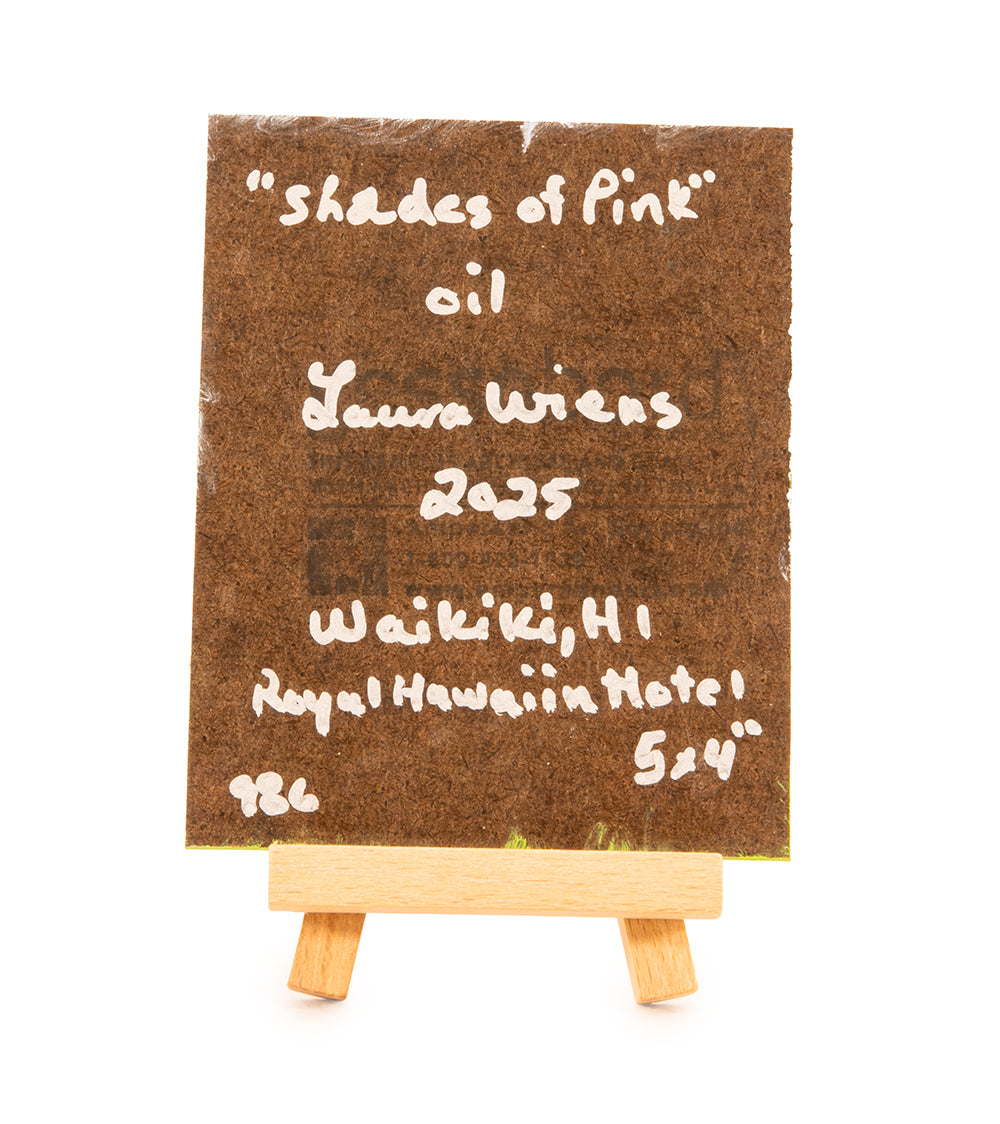 "Shades of Pink"
oil
Laura Wiens
2025
Waikiki, HI
Royal Hawaiin Hotel
5x4"
986